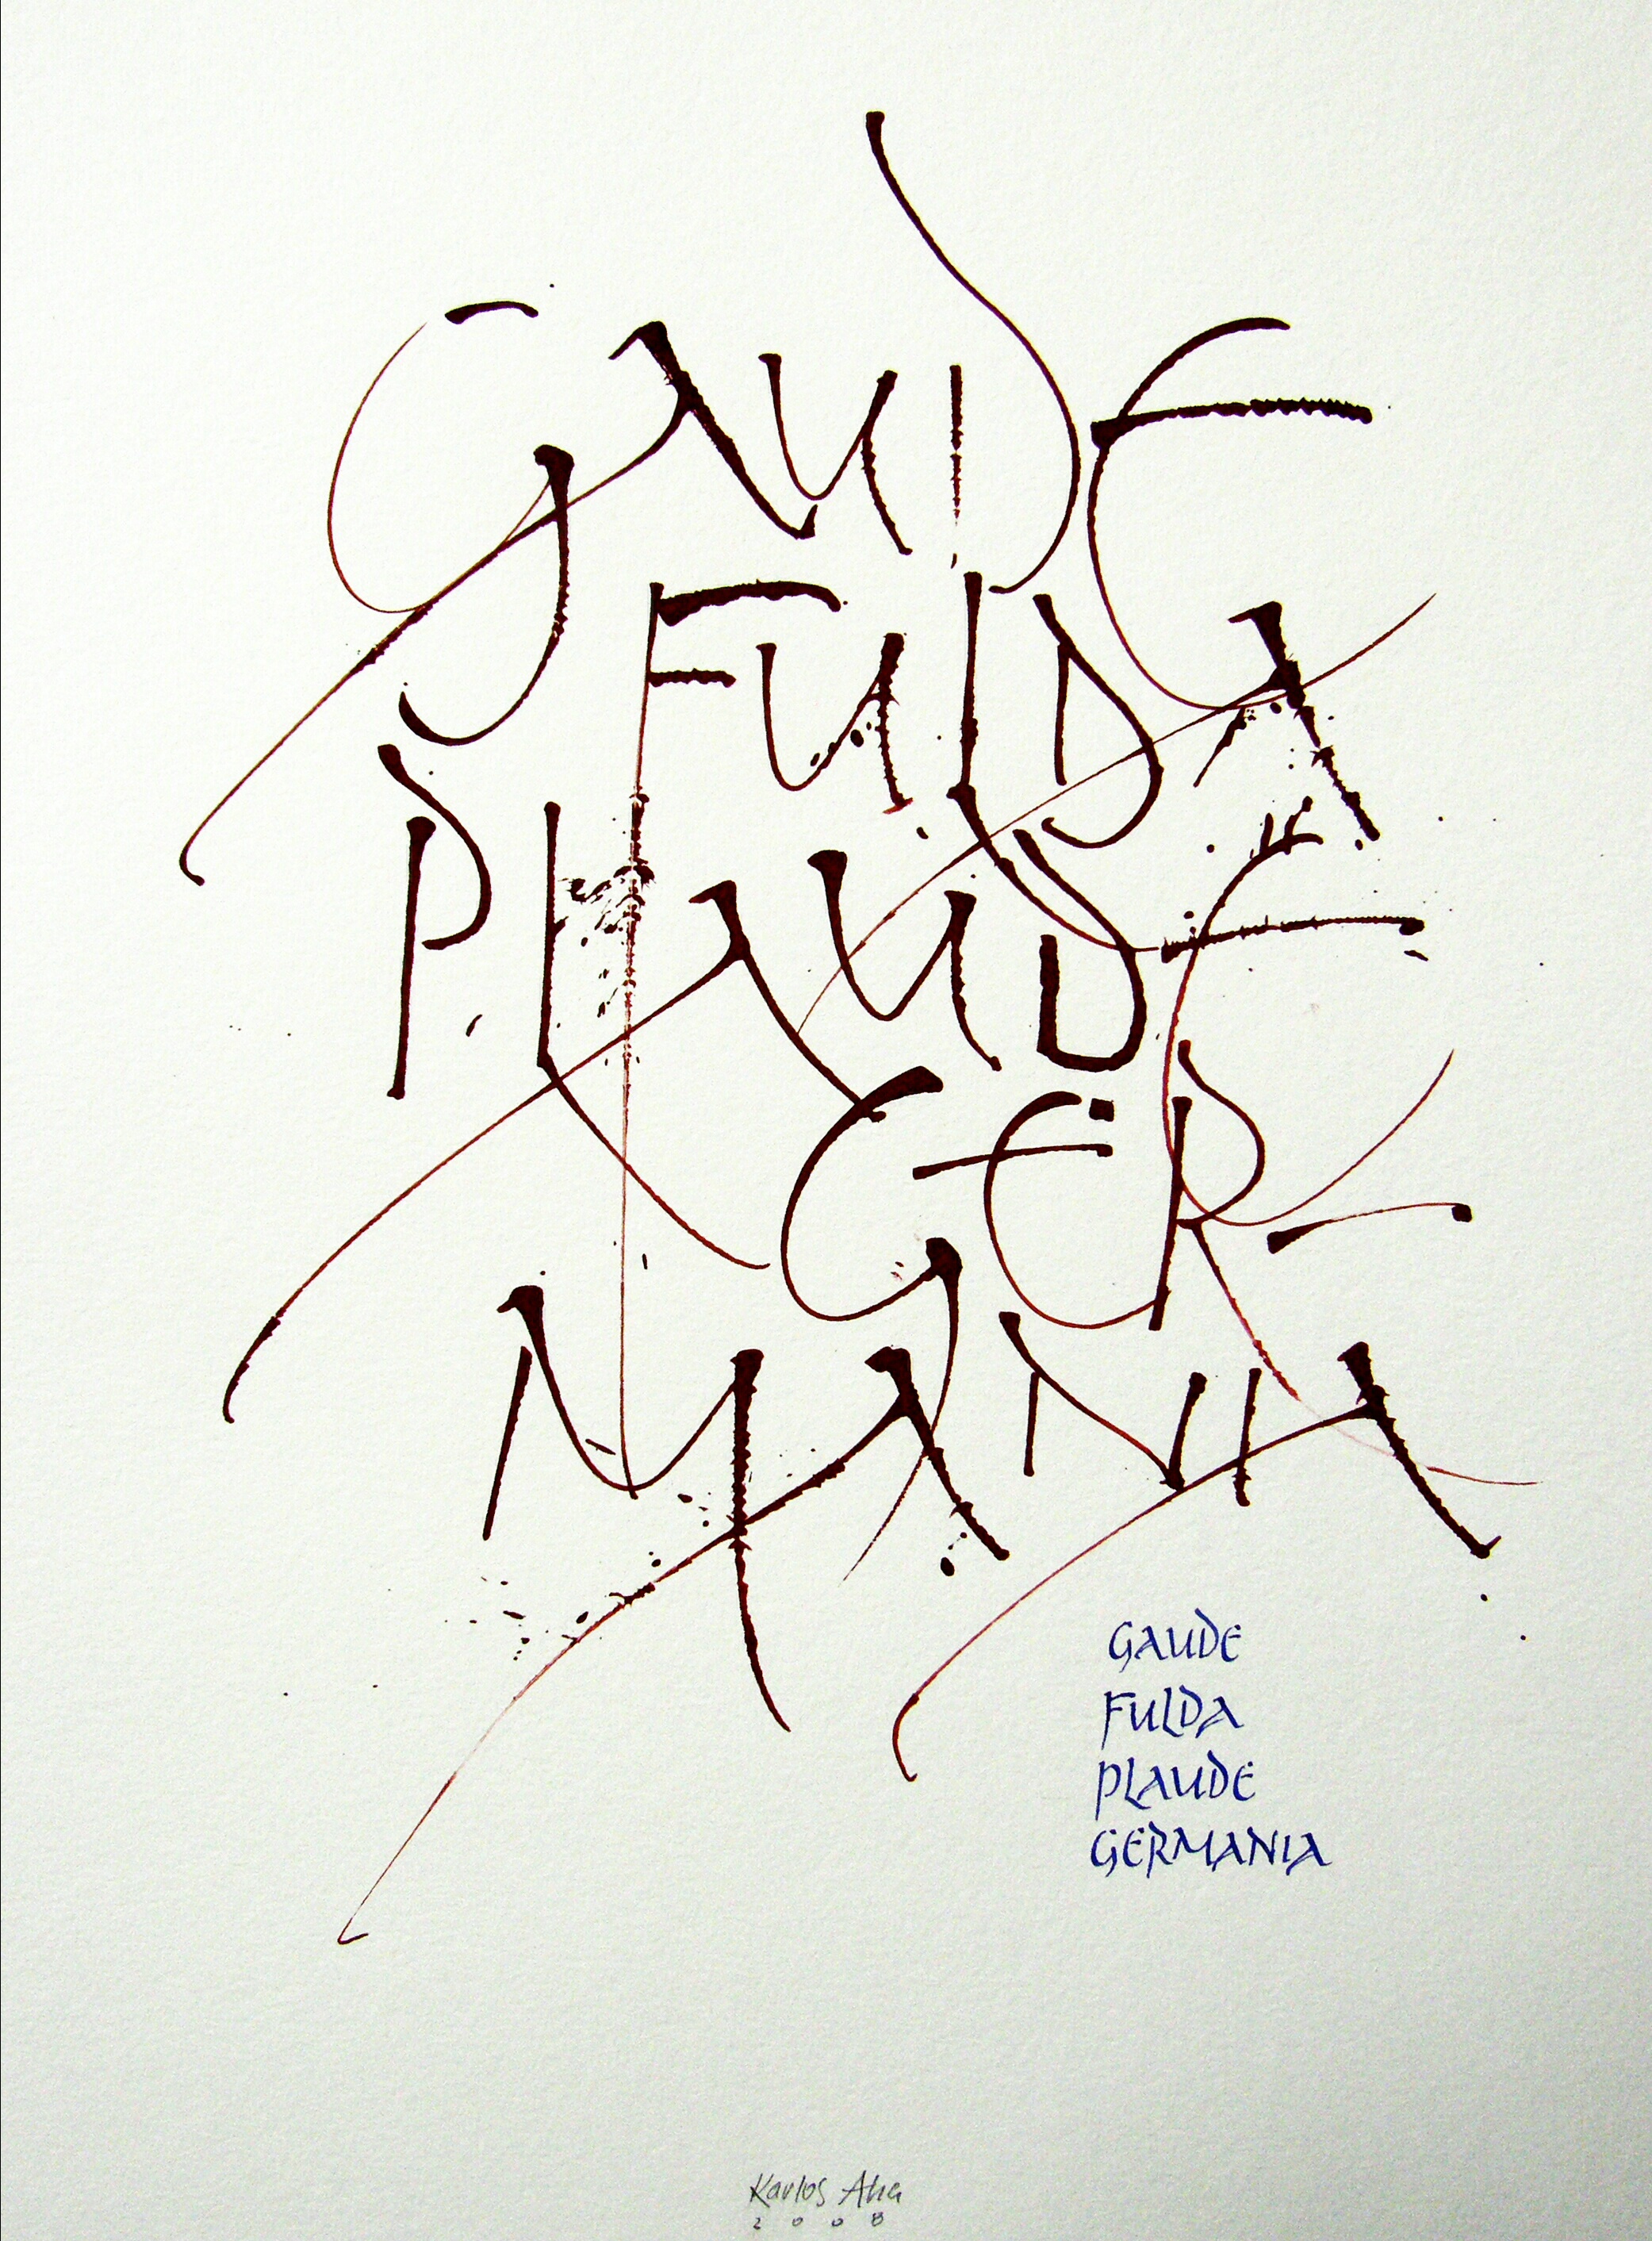 GAUDE
FULDA
PLAUDE
GER
MANIA
GAUDE
FULDA
PLAUDE
GERMANIA
Karlos
2008